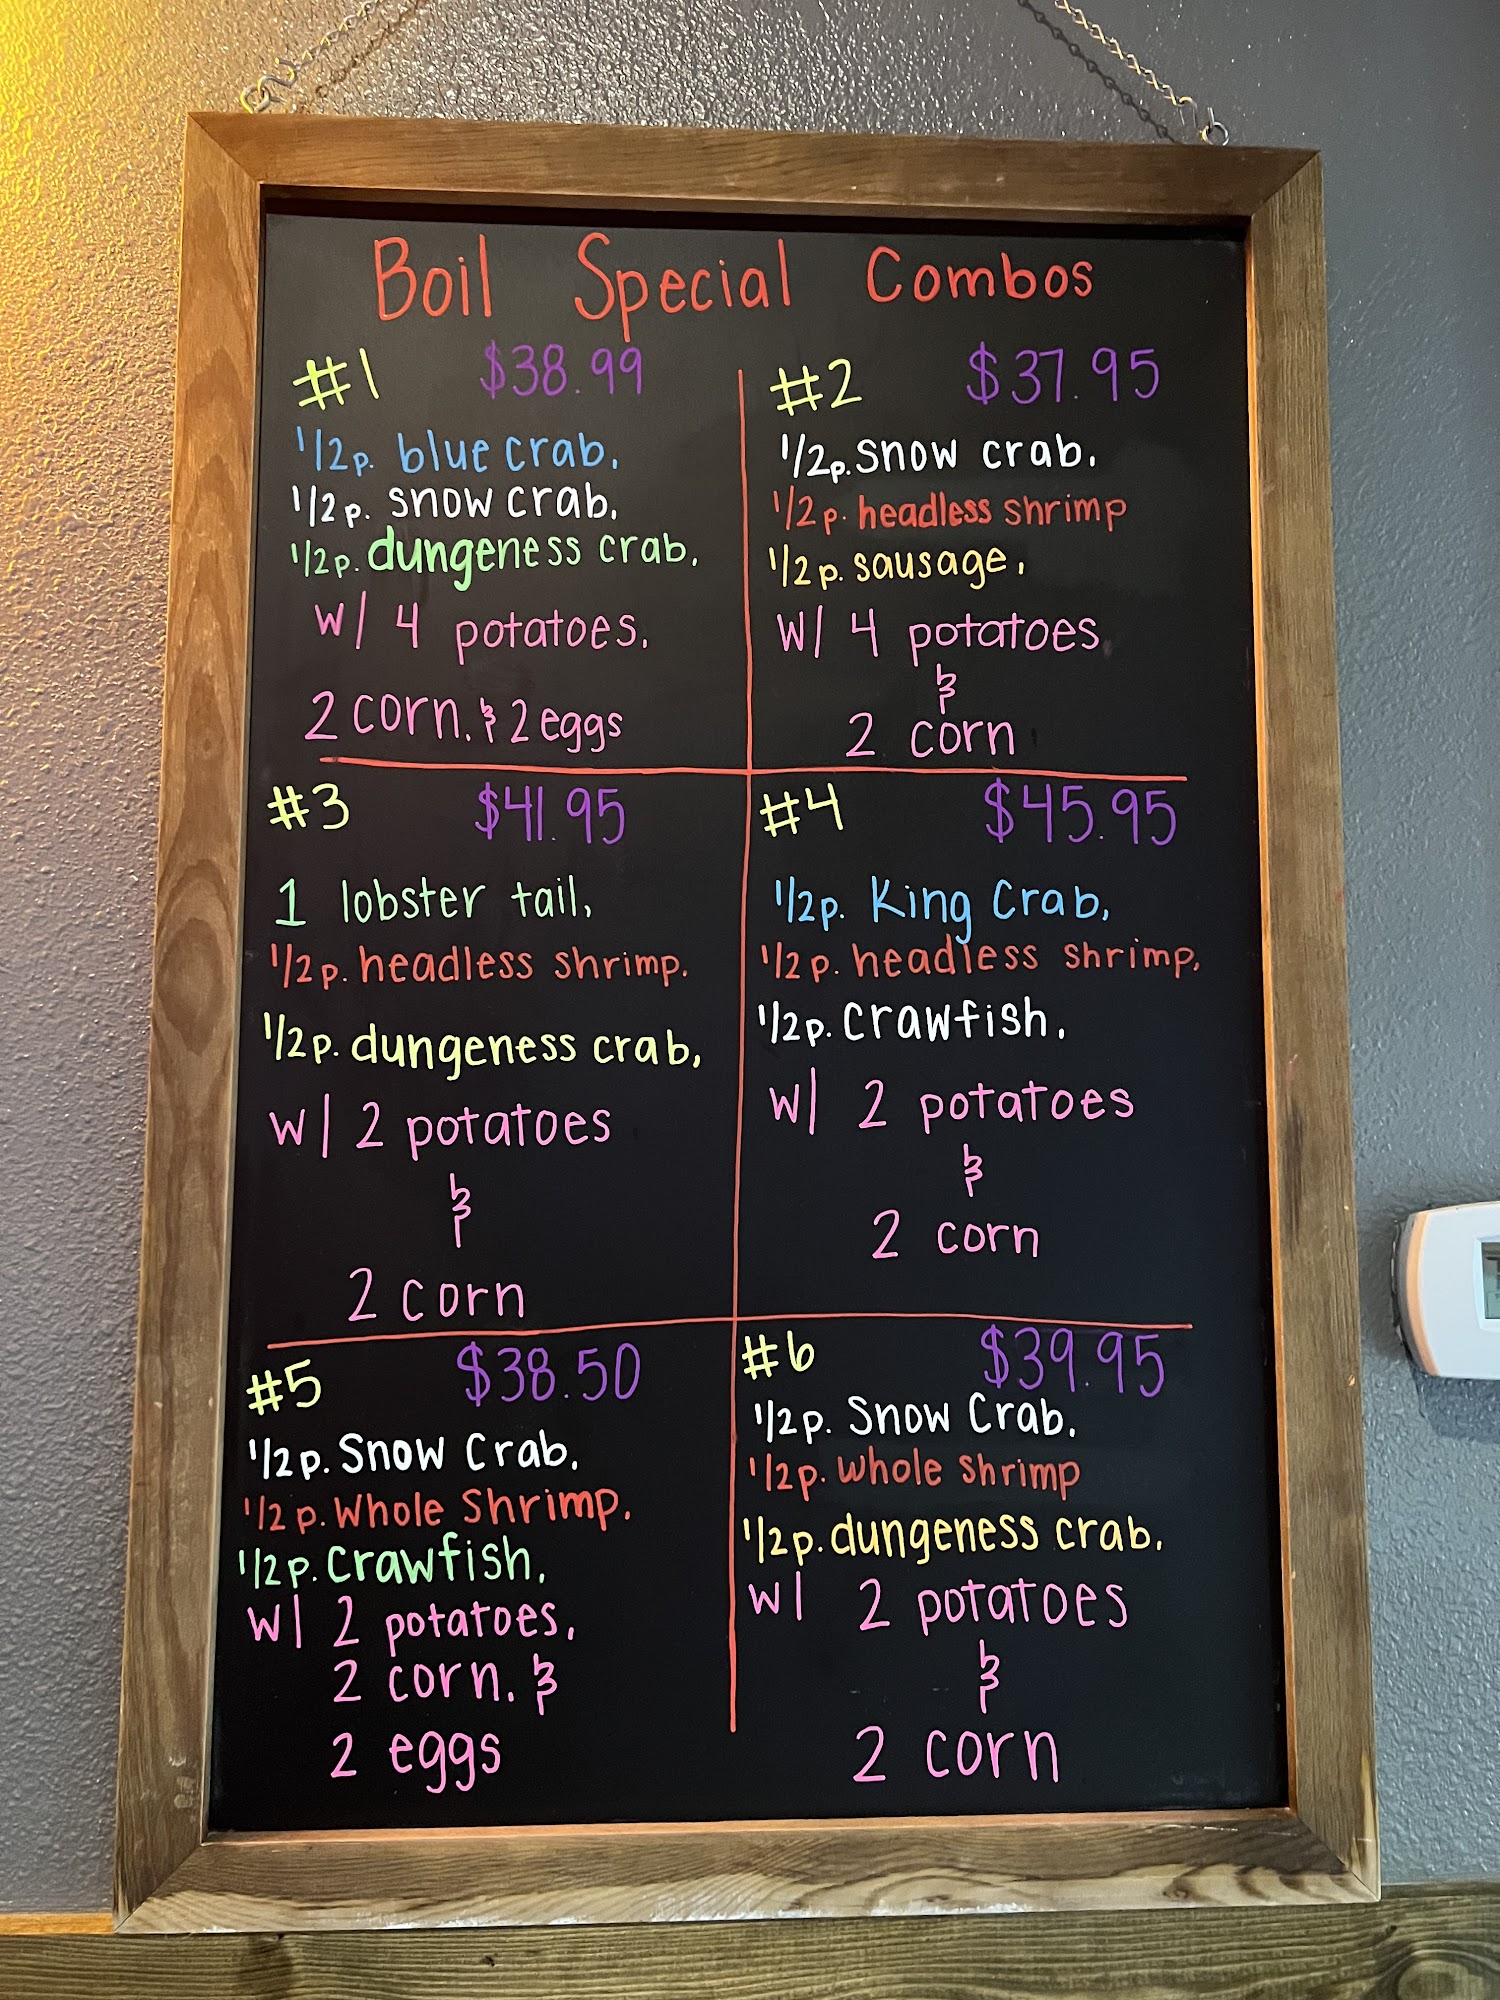 Boil Special Combos
#1 $38.99
1/2p. blue crab.
1/2p. snow crab.
1/2p. dungeness crab.
w/ 4 potatoes.
2 corn. & 2 eggs
#2 $37.95
1/2p. snow crab.
1/2p. headless shrimp
1/2p. sausage.
w/ 4 potatoes
&
2 corn
#3 $41.95
1 lobster tail,
1/2p. headless shrimp.
1/2p. dungeness crab,
w/ 2 potatoes
&
2 corn
#4 $45.95
1/2p. King Crab,
1/2p. headless shrimp,
1/2p. Crawfish.
w/ 2 potatoes
&
2 corn
#5 $38.50
1/2p. Snow Crab.
1/2p. Whole Shrimp.
1/2p. Crawfish.
w/ 2 potatoes,
2 corn. &
2 eggs
#6 $39.95
1/2p. Snow Crab.
1/2p. Whole Shrimp
1/2p. dungeness crab.
w/ 2 potatoes
&
2 corn